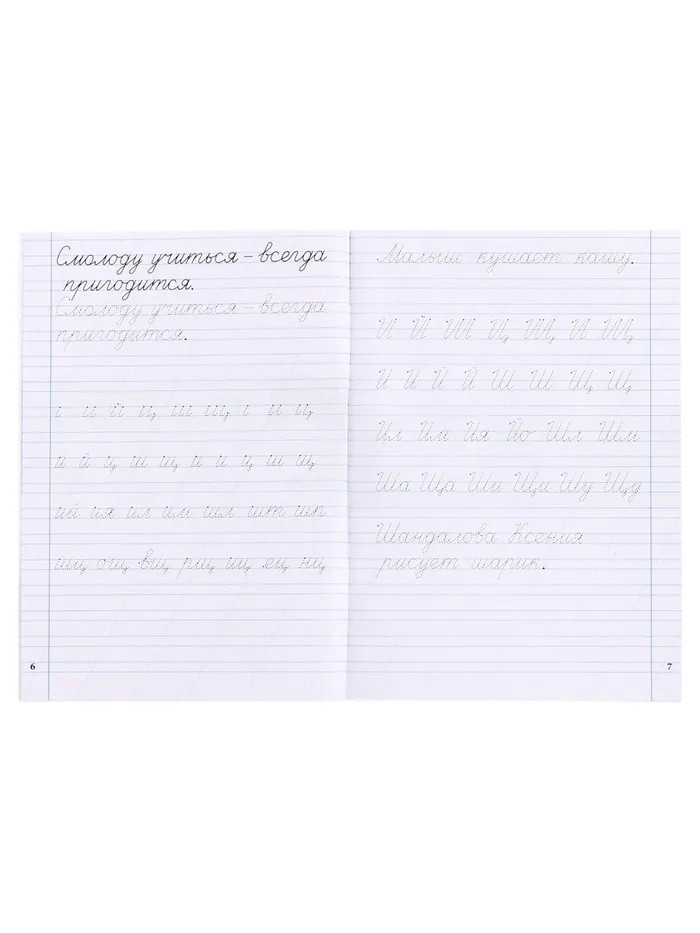 Смолоду учиться – всегда
пригодится.
Смолоду учиться – всегда
пригодится.
и й ц ш щ и ц
и й ц ш щ и й ц ш щ
ий ия ил им шл шт шп
иц ощ вщ рщ ищ ец нц
6
Малыш кушает кашу.
И Й Ш Ц Щ И Щ
И И Й Й Ш Ш Щ Щ
Ил Им Ия Йо Шл Шм
Ша Ща Ши Щи Шу Щу
Шандалова Ксения
рисует шарик.
7